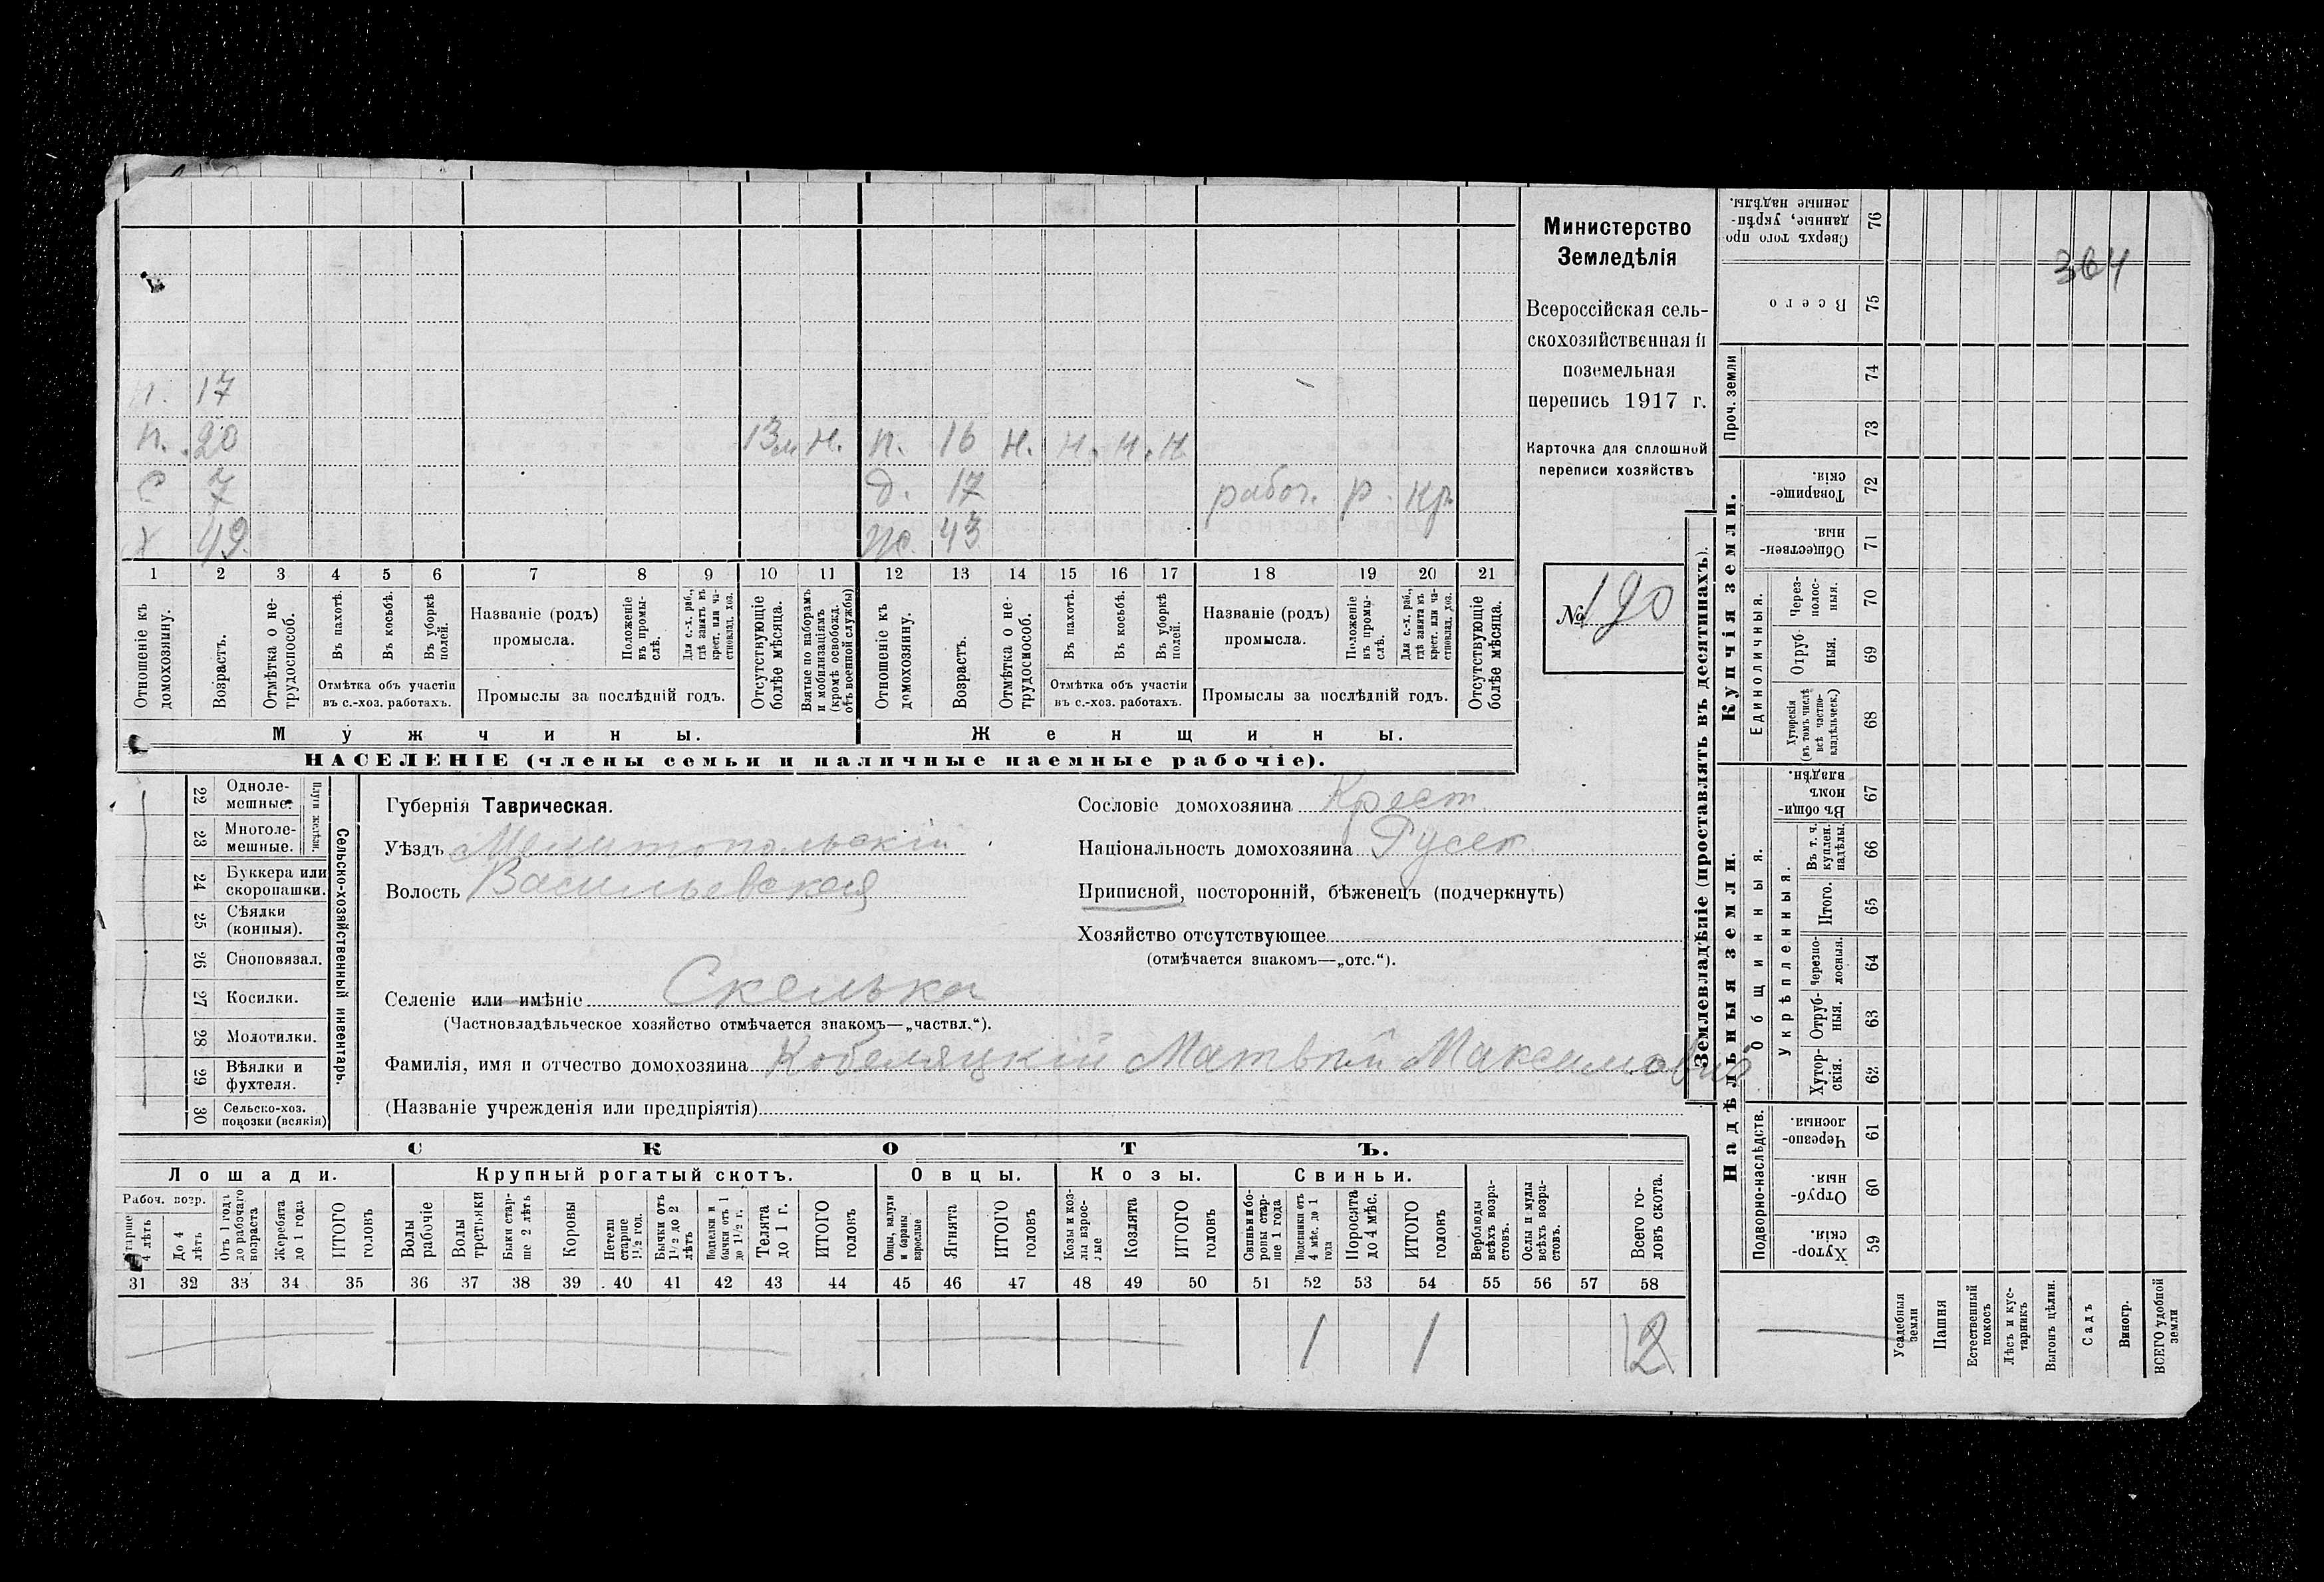 п. 17
п. 20 13 м н. п. 16 н. н. н. н
с 7 д. 17 рабоч. р. кр.
х 49. ж. 43
1 2 3 4 5 6 7 8 9 10 11 12 13 14 15 16 17 18 19 20 21
Отношеніе къ домохозяину.
Возрастъ.
Отмѣтка о нетрудоспособ.
Въ пахотѣ.
Въ косьбѣ.
Въ уборкѣ полей.
Отмѣтка объ участіи
въ с.-хоз. работахъ.
Названіе (родъ)
промысла.
Положеніе въ промыслѣ.
Для с.-х. раб., гдѣ занятъ въ крест. или частновлад. хоз.
Промыслы за послѣдній годъ.
Отсутствующіе болѣе мѣсяца.
Взятые по наборамъ и мобилизаціямъ (кромѣ освобожд. отъ военной службы)
Отношеніе къ домохозяину.
Возрастъ.
Отмѣтка о нетрудоспособ.
Въ пахотѣ.
Въ косьбѣ.
Въ уборкѣ полей.
Отмѣтка объ участіи
въ с.-хоз. работахъ.
Названіе (родъ)
промысла.
Положеніе въ промыслѣ.
Для с.-х. раб., гдѣ занята въ крест. или частновлад. хоз.
Промыслы за послѣдній годъ.
Отсутствующіе болѣе мѣсяца.
Мужчины. Женщины.
НАСЕЛЕНІЕ (члены семьи и наличные наемные рабочіе).
Министерство
Земледѣлія
Всероссійская сель-
скохозяйственная и
поземельная
перепись 1917 г.
Карточка для сплошной
переписи хозяйствъ
№ 190
22 Одноле-
мешные.
23 Многоле-
мешные.
Плуги желѣзн.
24 Буккера или
скоропашки.
25 Сѣялки
(конныя).
26 Сноповязал.
27 Косилки.
28 Молотилки.
29 Вѣялки и
фухтеля.
30 Сельско-хоз.
повозки (всякія)
Сельско-хозяйственный инвентарь.
Губернія Таврическая.
Уѣздъ Мелитопольскій
Волость Васильевская
Сословіе домохозяина Крест.
Національность домохозяина Русск.
Приписной, посторонній, бѣженецъ (подчеркнуть)
Хозяйство отсутствующее
(отмѣчается знакомъ—„отс.“).
Селеніе или имѣніе Скелька
(Частновладѣльческое хозяйство отмѣчается знакомъ—„частвл.“).
Фамилія, имя и отчество домохозяина Кобеляцкій Матвѣй Максимовичъ
(Названіе учрежденія или предпріятія)
СКОТЪ.
Лошади. Крупный рогатый скотъ. Овцы. Козы. Свиньи.
Рабоч. возр.
Старше 4 лѣтъ
До 4 лѣтъ
Отъ 1 года до рабочаго возраста
Жеребята до 1 года
ИТОГО головъ
Волы рабочіе
Волы третьяки
Быки старше 2 лѣтъ
Коровы
Нетели старше 1½ год.
Бычки отъ 1½ до 2 лѣтъ
Подтелки и бычки отъ 1 до 1½ г.
Телята до 1 г.
ИТОГО головъ
Овцы, валухи и бараны взрослые
Ягнята
ИТОГО головъ
Козы и козлы взрослые
Козлята
ИТОГО головъ
Свиньи и боровы старше 1 года
Подсвинки отъ 4 мѣс. до 1 года
Поросята до 4 мѣс.
ИТОГО головъ
Верблюды всѣхъ возрастовъ.
Ослы и мулы всѣхъ возрастовъ.
Всего головъ скота.
31 32 33 34 35 36 37 38 39 40 41 42 43 44 45 46 47 48 49 50 51 52 53 54 55 56 57 58
1 1
Землевладѣніе (проставлять въ десятинахъ).
364
Сверхъ того проданные, укрѣпленные надѣлы. 76
Всего 75
Проч. земли
74
73
Купчія земли.
Товарищескія. 72
Общественныя. 71
Единоличныя.
Черезполосныя. 70
Отрубныя. 69
Хуторскія (въ томъ числѣ всѣ частновладѣльческ.) 68
Надѣльныя земли.
Общинныя.
Въ общинномъ владѣн. 67
Укрѣпленныя.
Въ т. ч. куплен. надѣлы. 66
Итого. 65
Черезполосныя. 64
Отрубныя. 63
Хуторскія. 62
Подворно-наслѣдств.
Черезполосныя. 61
Отрубныя. 60
Хуторскія. 59
Усадебныя земли
Пашня
Естественный покосъ
Лѣсъ и кустарникъ
Выгонъ цѣлин.
Садъ
Виногр.
ВСЕГО удобной земли